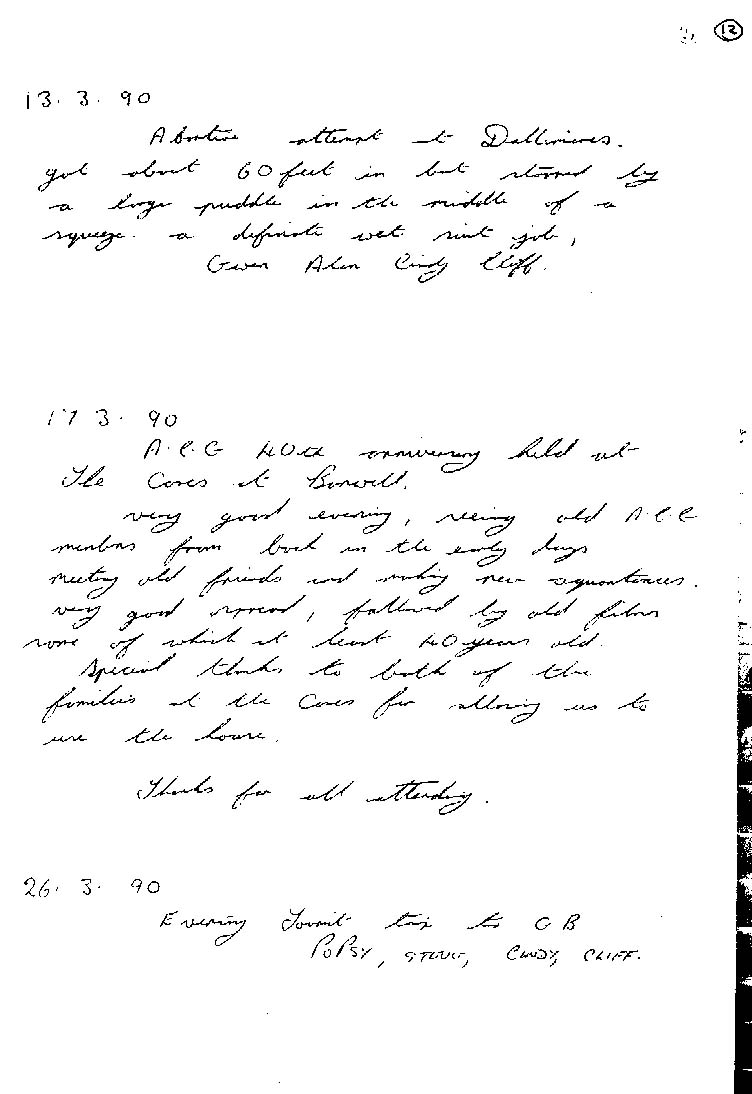 12
13. 3. 90
Abortive attempt at Dallimores.
got about 60 feet in but stopped by
a large puddle in the middle of a
squeeze. a definate wet suit job,
Gwen Alan Cindy Cliff.
17 3. 90
A.C.G 40th anniversary held at
The Caves at Banwell.
very good evening, seeing old A.C.G
members from back in the early days
meeting old friends and making new aquantances.
very good spread, followed by old films
some of which at least 40 years old.
Special thanks to both of the
families at the Caves for allowing us to
use the house.
Thanks for all attending.
26. 3. 90
Evening Tourist trip to G B
POPSY, CINDY, CLIFF.